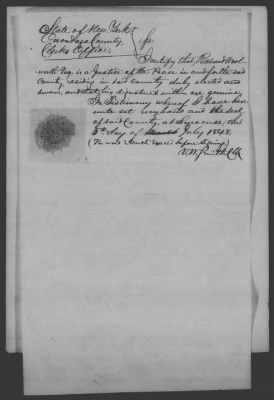 State of New York
Onondaga County, } ss.
Clerks Office.
I certify that, Richard Wool-
worth Esq. is a Justice of the Peace in and for the said
County, residing in said County duly elected and
sworn, and that his signature within are genuine,
In Testimony whereof I have here
unto set my hand and the seal
of said County, at Syracuse this
5th day of July 1848.
(The word erased before signing)
V. W. Smith Clk